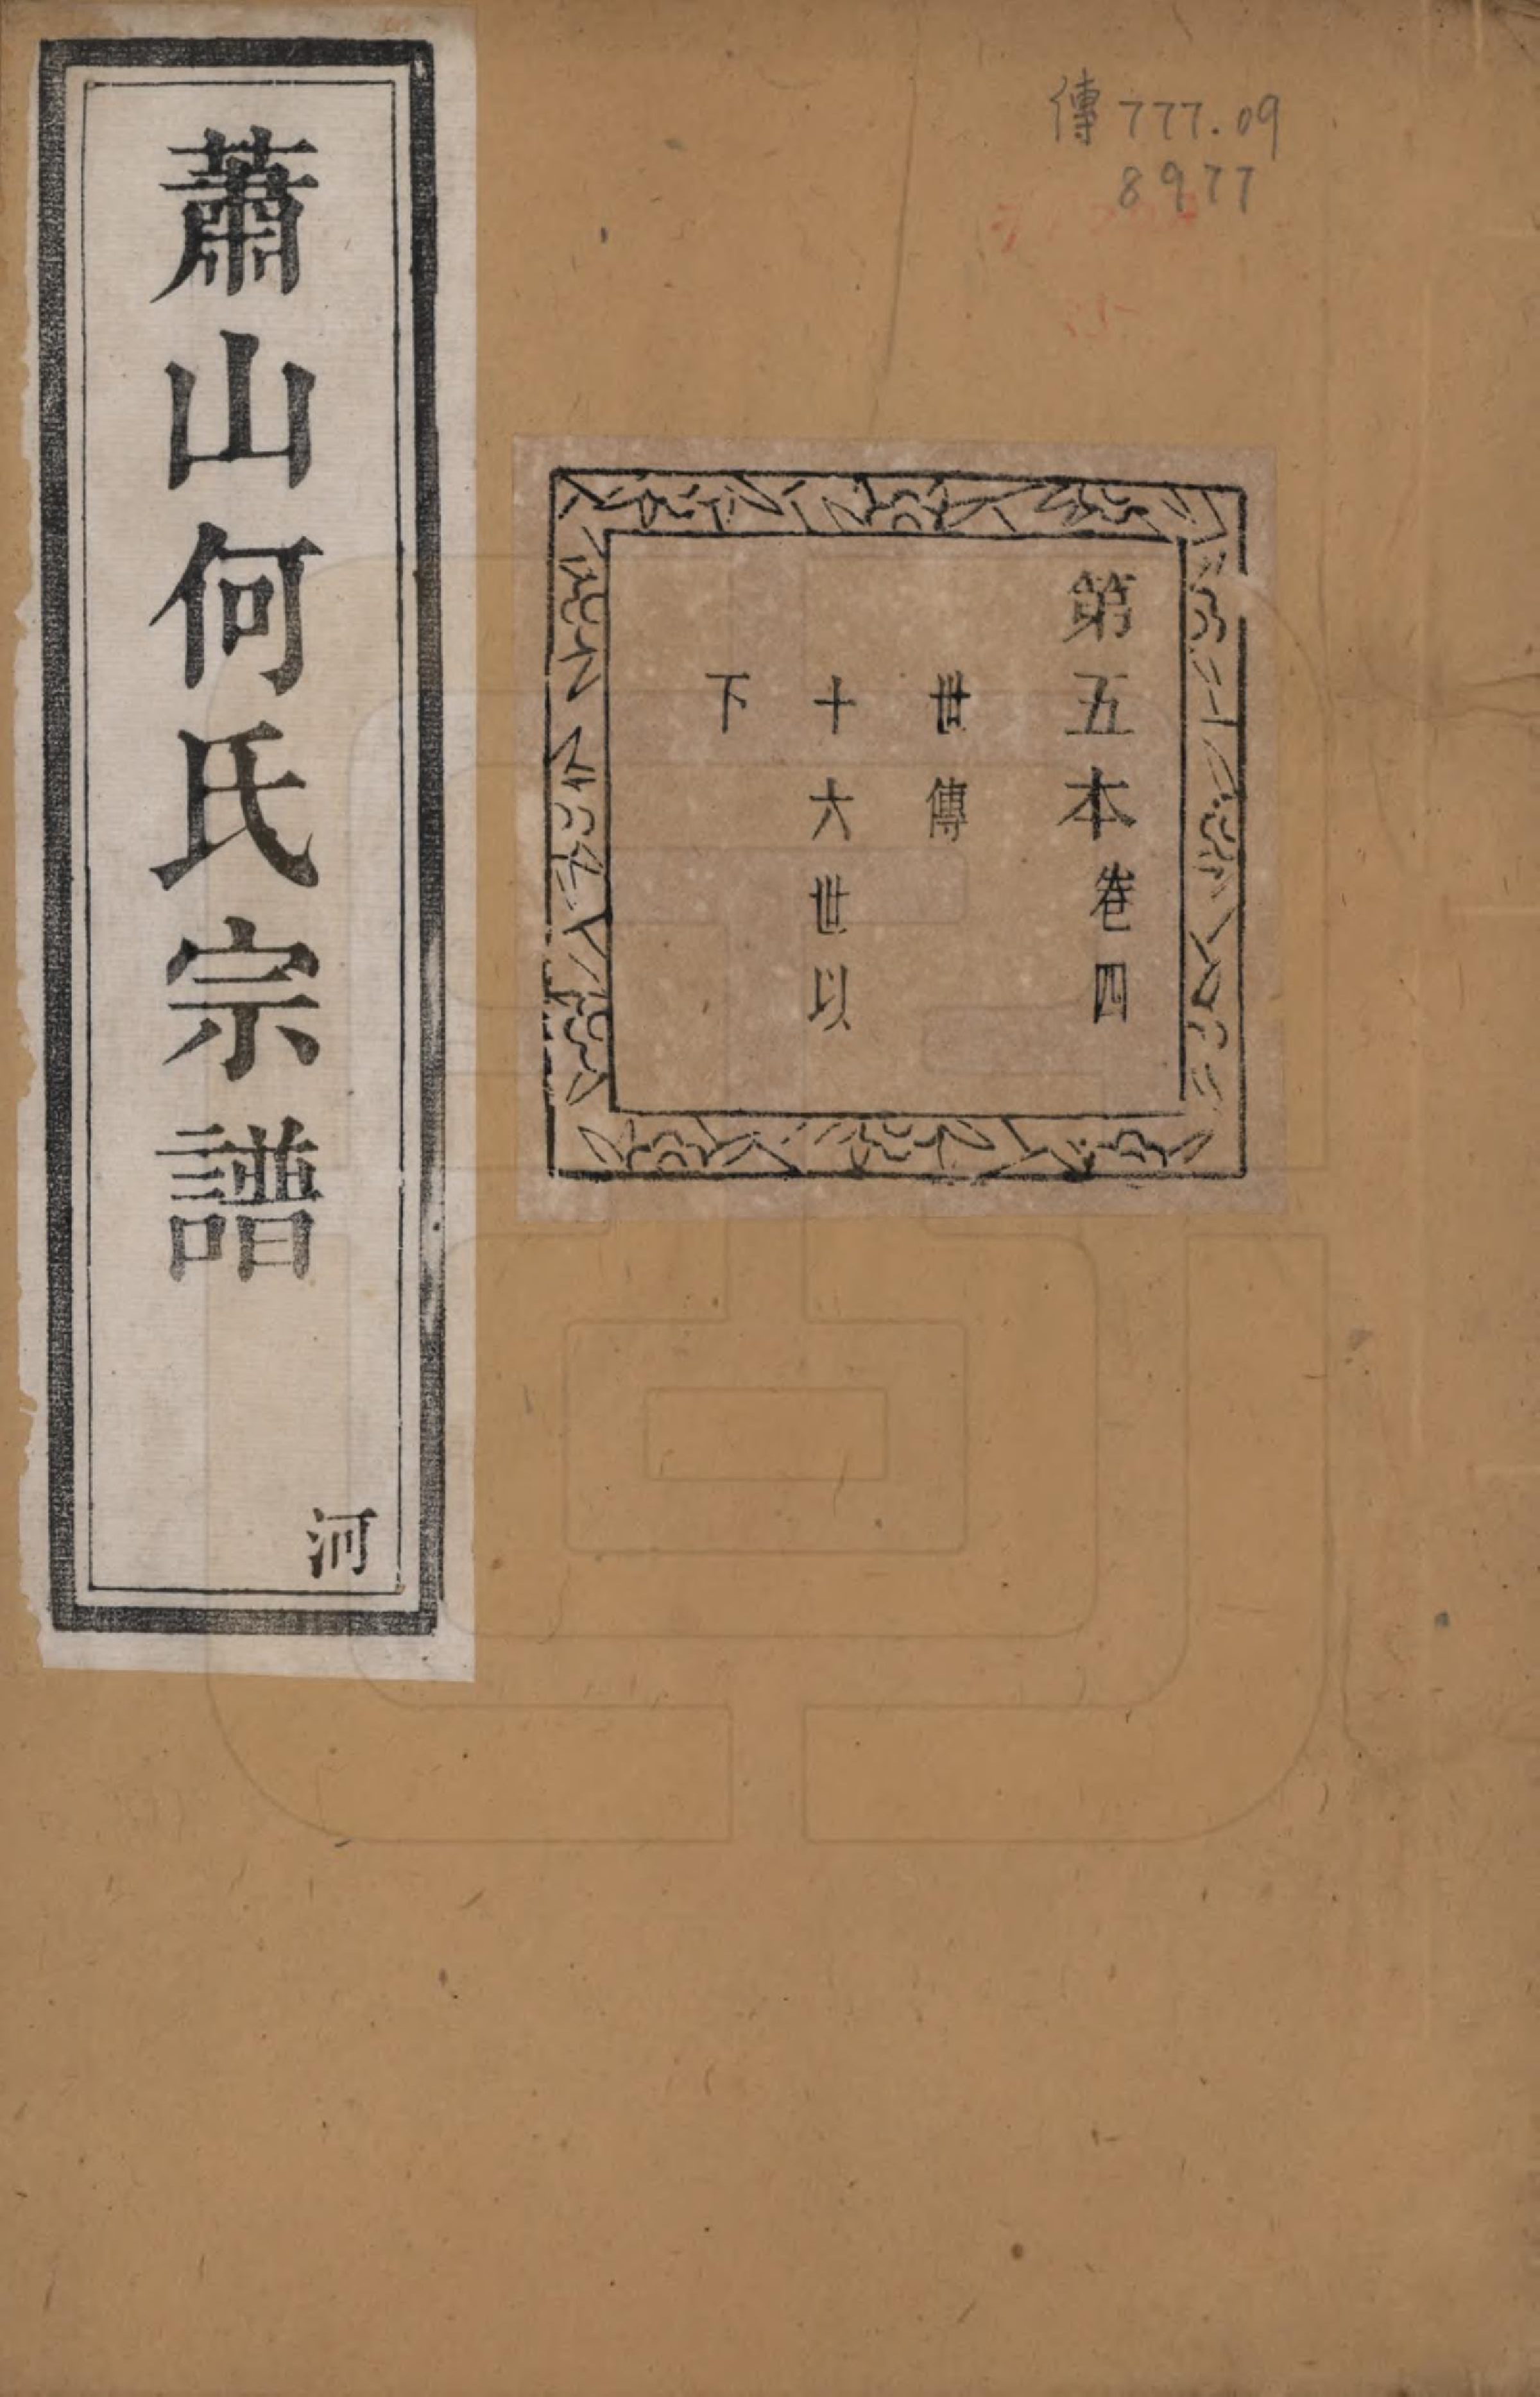 傳 777.09
8977
第五本卷四
世傳
十六世以
下
蕭山何氏宗譜
河